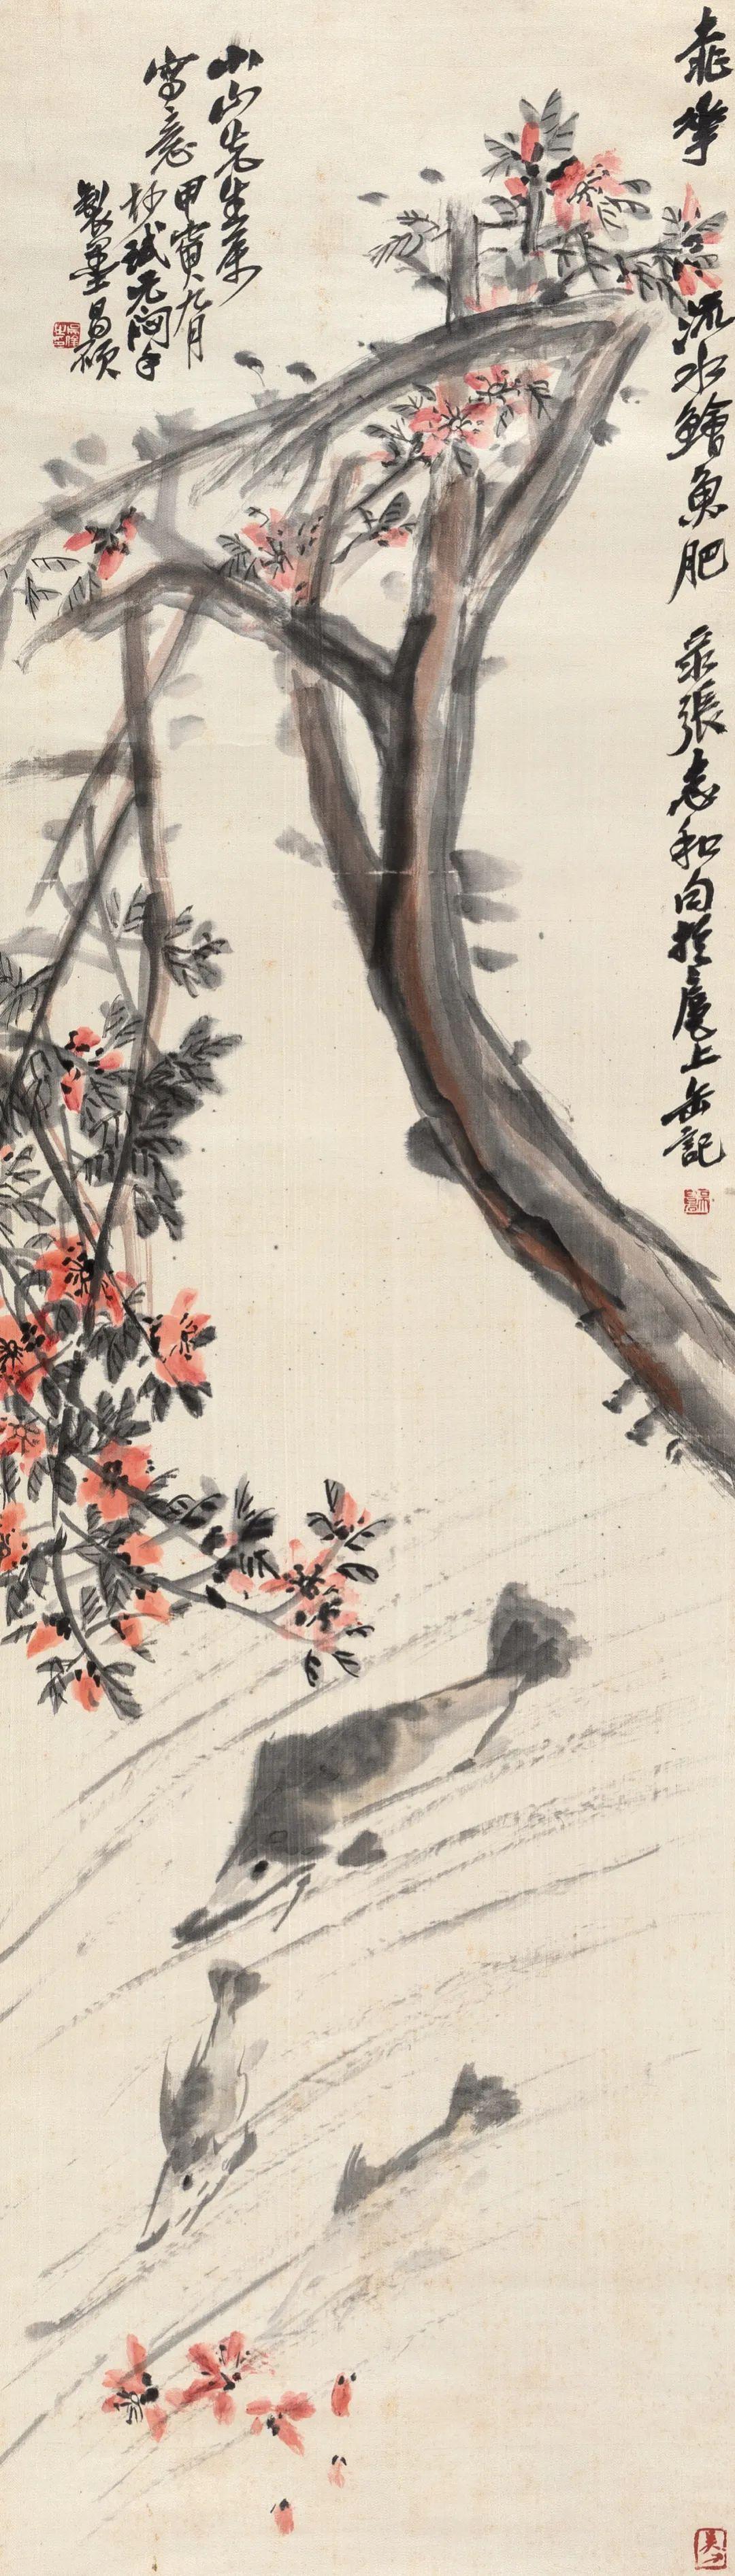 桃華流水鱠魚肥 录張志和句於扈上 缶記
小山先生屬
寫意 甲寅九月
杪 試元閣手
製墨 昌碩